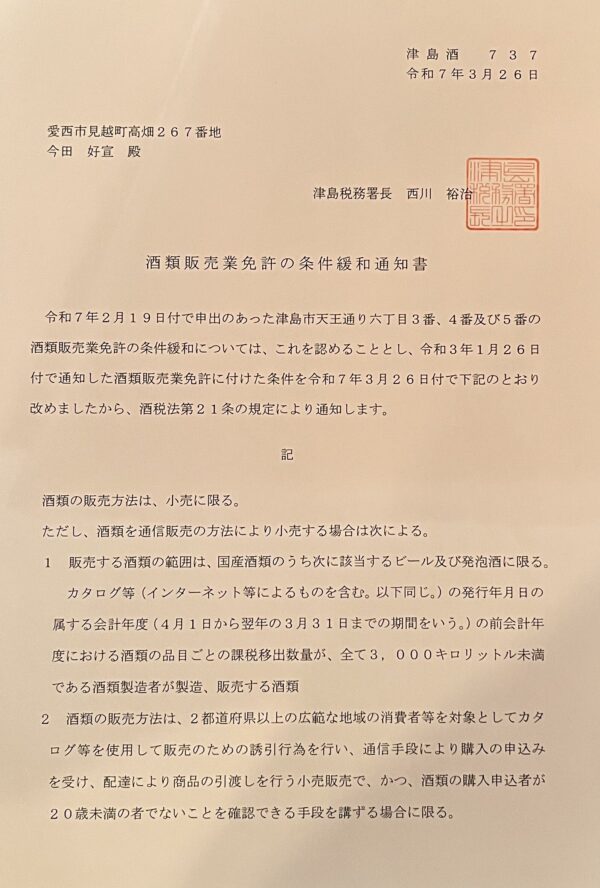 津島酒　７３７
令和７年３月２６日
愛西市見越町高畑２６７番地
今田　好宣　殿
津島税務署長　西川　裕治
酒類販売業免許の条件緩和通知書
令和７年２月１９日付で申出のあった津島市天王通り六丁目３番、４番及び５番の
酒類販売業免許の条件緩和については、これを認めることとし、令和３年１月２６日
付で通知した酒類販売業免許に付けた条件を令和７年３月２６日付で下記のとおり
改めましたから、酒税法第２１条の規定により通知します。
記
酒類の販売方法は、小売に限る。
ただし、酒類を通信販売の方法により小売する場合は次による。
１　販売する酒類の範囲は、国産酒類のうち次に該当するビール及び発泡酒に限る。
カタログ等（インターネット等によるものを含む。以下同じ。）の発行年月日の
属する会計年度（４月１日から翌年の３月３１日までの期間をいう。）の前会計年
度における酒類の品目ごとの課税移出数量が、全て３，０００キロリットル未満
である酒類製造者が製造、販売する酒類
２　酒類の販売方法は、２都道府県以上の広範な地域の消費者等を対象としてカタ
ログ等を使用して販売のための誘引行為を行い、通信手段により購入の申込み
を受け、配達により商品の引渡しを行う小売販売で、かつ、酒類の購入申込者が
２０歳未満の者でないことを確認できる手段を講ずる場合に限る。